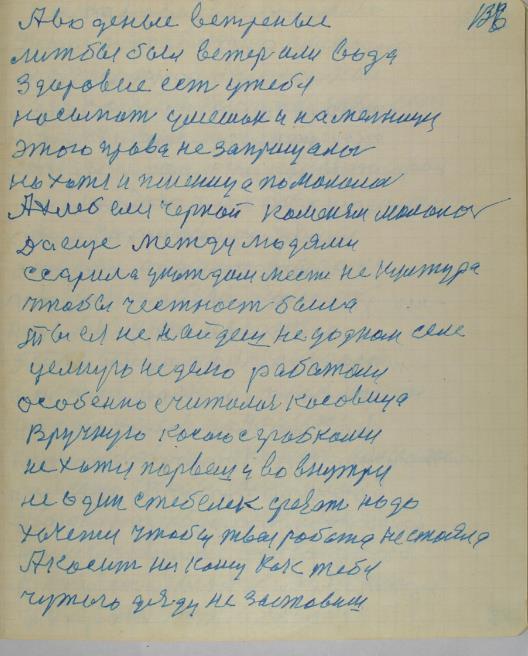 136
А во деные ветреные
лит бы был ветер или вода
Здоровие ест у тебя
насыпат у мешок и на мелницу
этого права не заприщалос
но хотя и пшеница помололас
А хлеб ели черной каменям мололос
Да еще между людями
ссарила у каждом месте не култура
чтобы честност была
Ты ея не найдеш не у одном селе
целную неделю работали
особенно считалося косовица
Вручную косою с грабками
не хотя порвеш у во внутри
не один стебелек срезат надо
хочети чтобы твая робота не стояла
А косит ни каму как тебя
чужого дядю не заставиш